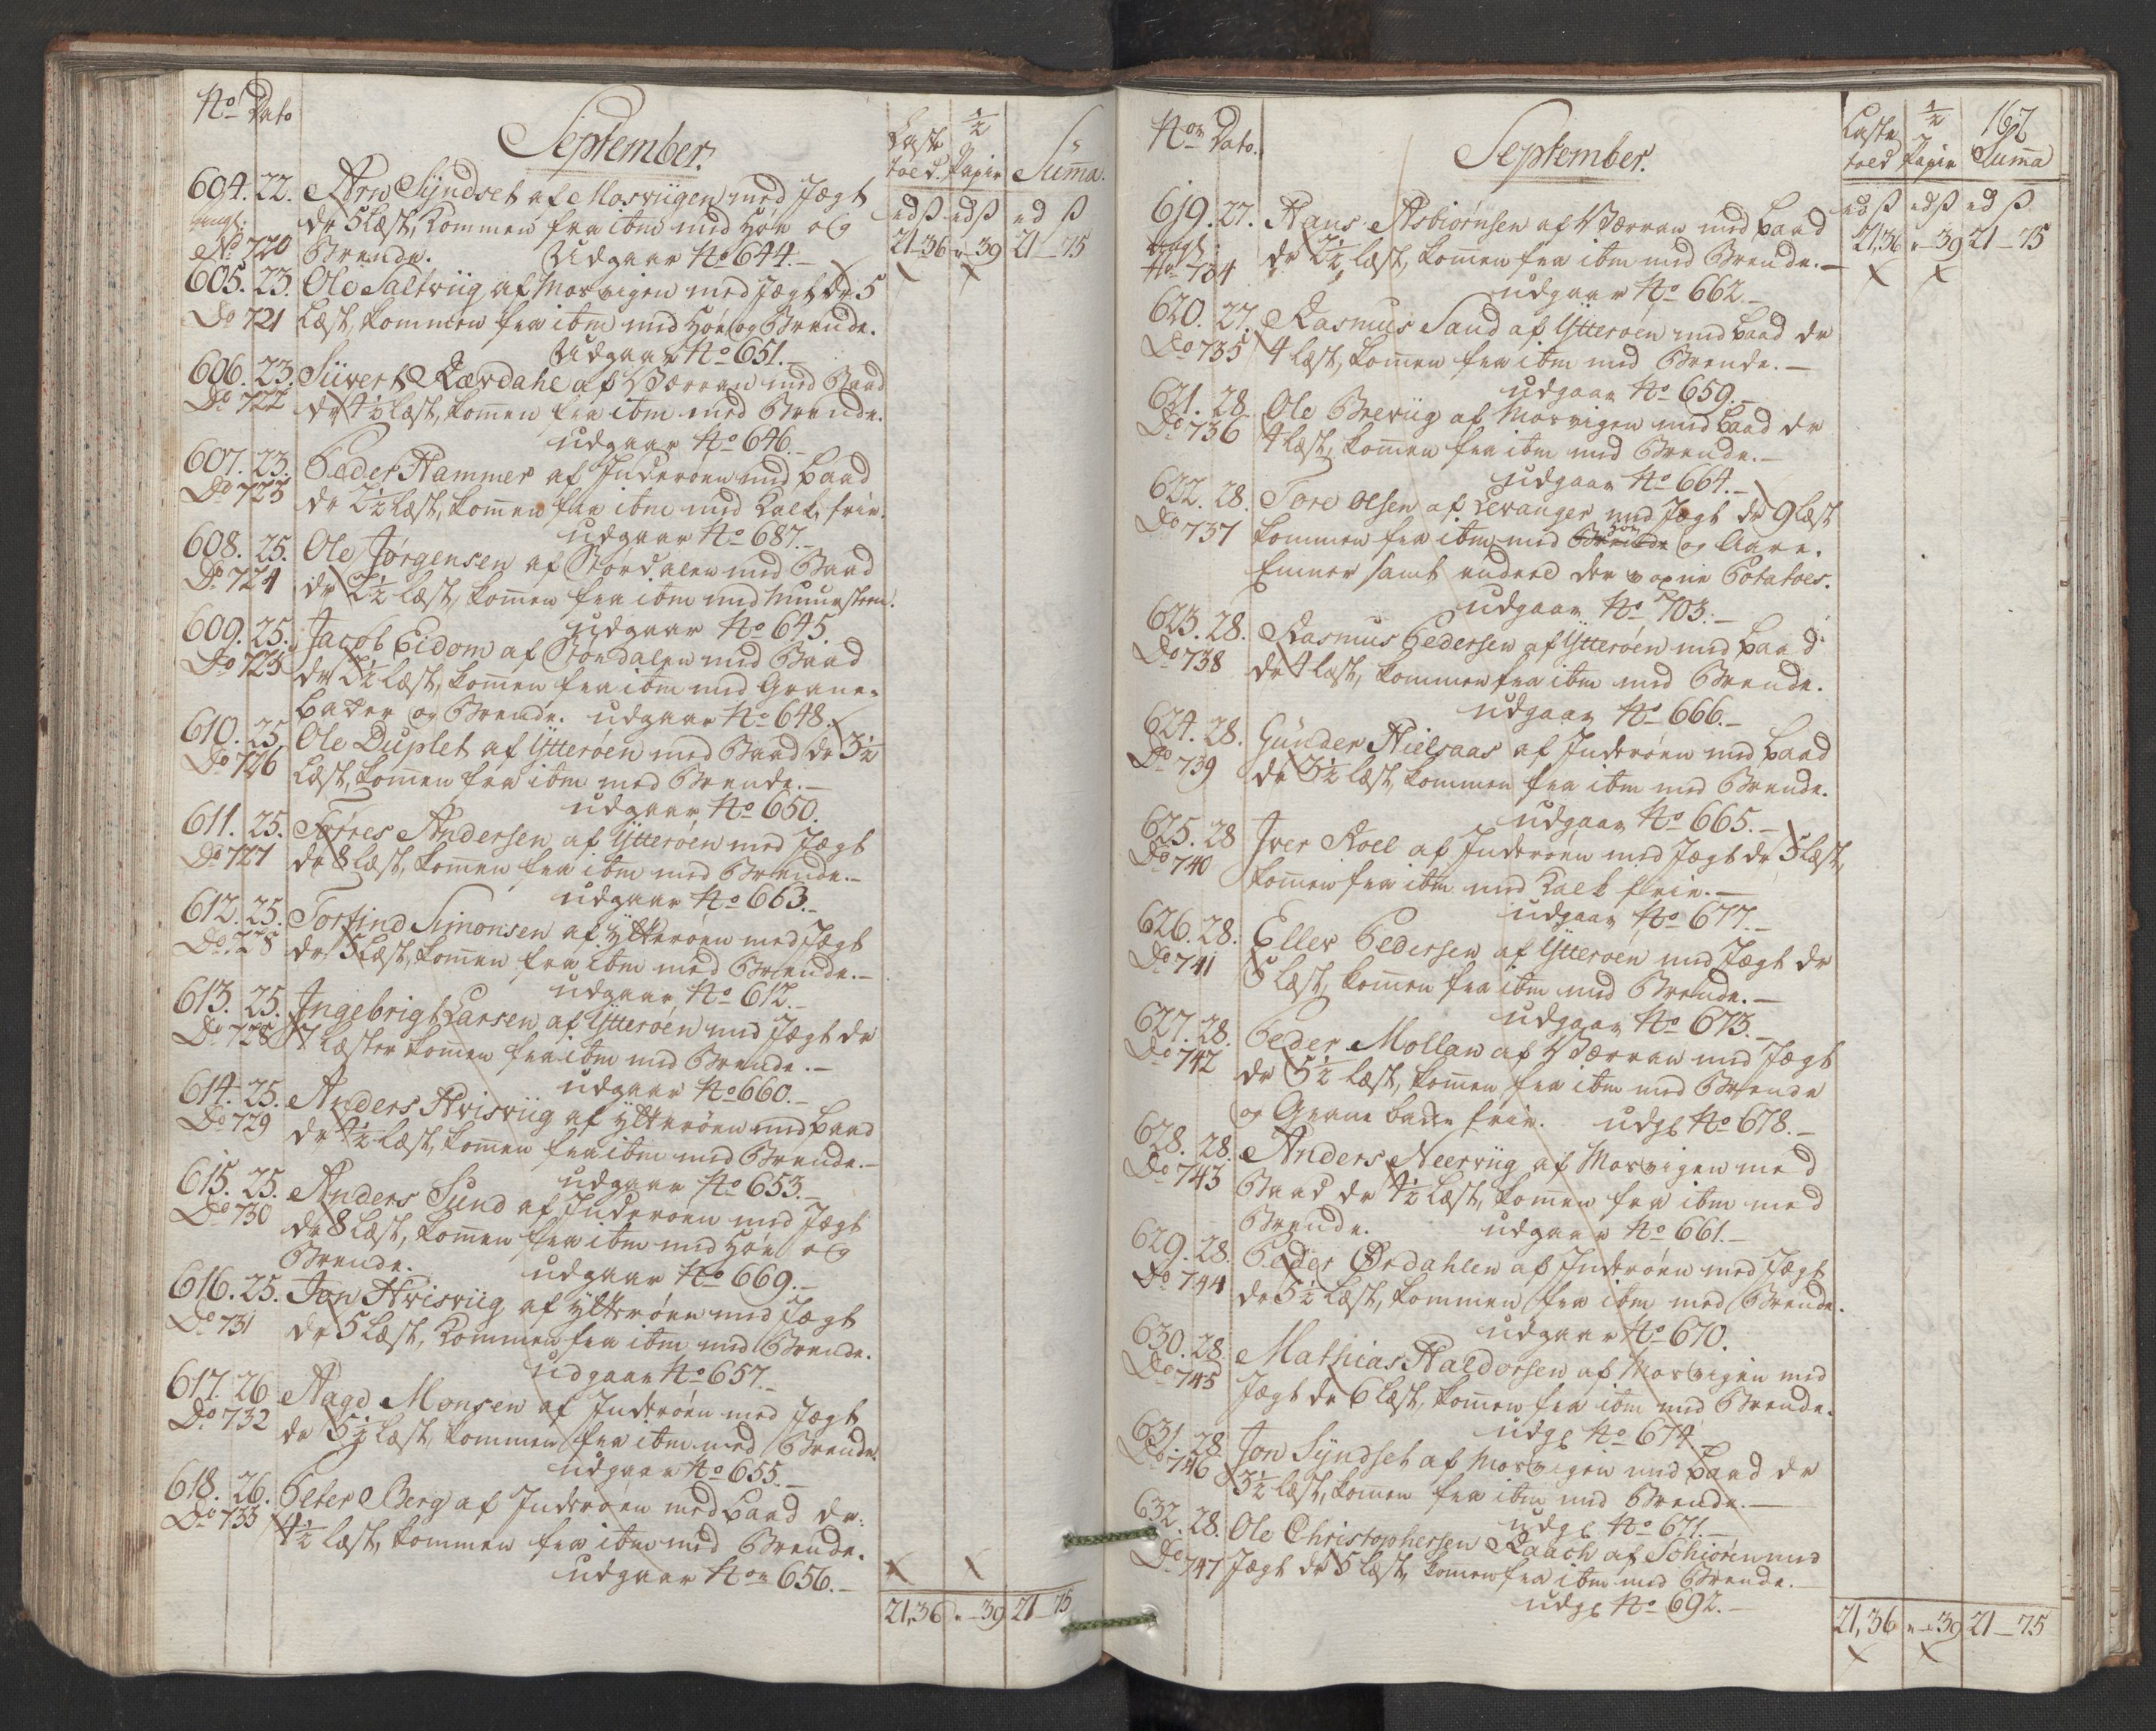 No Dato
September.
Laste toed. 1/2 Papir Suma.
rdß rdß rd ß
21-36 „-39 21-75
604. 22. Arn Syndset af Mosviigen med Jægt
dr 5 Læst, kommen fra ibm med Høe og
No 720 Brende. Udgaar No 644.-
605. 23. Ole Saltviig af Mosvigen med Jægt dr 5
Do 721 Læst, kommen fra ibm med Høe og Brende.
Udgaar No 651.-
606. 23. Siivert Kærdahl af Værran med Baad
Do 722 dr 4½ læst, kom̅en fra ibm med Brende.
udgaar No 646.-
607. 23. Peder Hammer af Inderøen med Baad
Do 723 dr 2½ læst, kom̅en fra ibm med Kalk, frie.
udgaar No 687.-
608. 25. Ole Jørgensen af Størdalen med Baad
Do 724 dr 2½ læst, kom̅en fra ibm med Muursteen.
udgaar No 645.
609. 25. Jacob Eidom af Størdalen med Baad
Do 725 dr 2½ læst, kom̅en fra ibm med Grane-
Bader og Brende. udgaar No 648.
610. 25 Ole Duplet af Ytterøen med Baad dr 3½
Do 726 Læst, kom̅en fra ibm med Brende.-
udgaar No 650.
611. 25. Torres Andersen af Ytterøen med Jægt
Do 727 dr 8 læst, kom̅en fra ibm med Brende.-
udgaar No 663.-
612. 25. Torfind Simonsen af Ytterøen med Jægt
Do 728 dr 5 Læst, kom̅en fra ibm med Brende.-
udgaar No 612.-
613. 25. Ingebrigt Larsen af Ytterøen med Jægt dr
Do 728 7 læster kom̅en fra ibm med Brende.-
udgaar No 660.-
614. 25. Anders Hvisviig af Ytterøen med Baad
Do 729 dr 4½ læst, kom̅en fra ibm med Brende.-
udgaar No 653.-
615. 25. Anders Sund af Inderøen med Jægt
Do 730 dr 8 læst, kom̅en fra ibm med Høe og
Brende. udgaar No 669.-
616. 25. Jon Hvisviig af Ytterøen med Jægt
Do 731 dr 5 læst, kommen fra ibm med Brende.
udgaar No 657.-
617. 26 Aage Monsen af Inderøen med Jægt
Do 732 dr 5½ læst, kommen fra ibm med Brende.
udgaar No 655.-
618. 26. Peter Berg af Inderøen med Baad dr:
Do 733 4½ læst, kommen fra ibm med Brende.
udgaar No 656.-
21,36 „-39 21-75
Nor Dato.
September.
Laste toed 1/2 Papir 167 Suma
rd ß rdß rd ß
21,36 „-39 21-75
619. 27. Hans Asbiørnsen af Værran med Baad
No 734 dr 2½ læst, kom̅en fra ibm med Brende.-
udgaar No 662.-
620. 27. Rasmus Sand af Ytterøen med Baad dr
Do 735 4 læst, kom̅en fra ibm med Brende.-
udgaar No 659.-
621. 28. Ole Breviig af Mosvigen med Baad dr
Do 736 4 læst, kom̅en fra ibm med Brende.-
udgaar No 664.-
622. 28. Tore Olsen af Levanger med Jægt dr 9 læst
Do 737 kommen fra ibm med Høe og Aare.
Emner samt
Potatoes.
udgaar No 703.-
623. 28. Rasmus Pedersen af Ytterøen med Baad
Do 738 dr 4 læst, kommen fra ibm med Brende.
udgaar No 666.-
624. 28. Gunder Hielsaas af Inderøen med Baad
Do 739 dr 3½ læst, kommen fra ibm med Brende.
udgaar No 665.-
625. 28 Iver Roel af Inderøen med Jægt dr 5 læst,
Do 740 kom̅en fra ibm med Kalk frie.-
udgaar No 677.-
626. 28. Eller Pedersen af Ytterøen med Jægt dr
Do 741 8 læst, kom̅en fra ibm med Brende.-
udgaar No 673.-
627. 28. Peder Mollan af Værran med Jægt
Do 742 dr 5½ læst, kom̅en fra ibm med Brende
og Grane bader frie. udgl No 678.-
628. 28. Anders Neerviig af Mosvigen med
Do 743 Baad dr 4½ læst, kom̅en fra ibm med
Brende. udgaar No 661.-
629. 28. Peder Ørdahlen af Inderøen med Jægt
Do 744 dr 5½ læst, kommen fra ibm med Brende.
udgaar No 670.
630. 28. Mathias Haldorsen af Mosvigen med
Do 745 Jægt dr 6 læst, kom̅en fra ibm med Brende.
udgl No 674
631. 28. Jon Syndset af Mosvigen med Baad dr
Do 746 3½ læst, kom̅en fra ibm med Brende.-
udgl No 671.-
632. 28. Ole Christophersen Raach af Schiøren med
Do 747 Jægt dr 5 læst, kom̅en fra ibm med Brende.-
udgl No 692.-
21,36 „-39 21-75